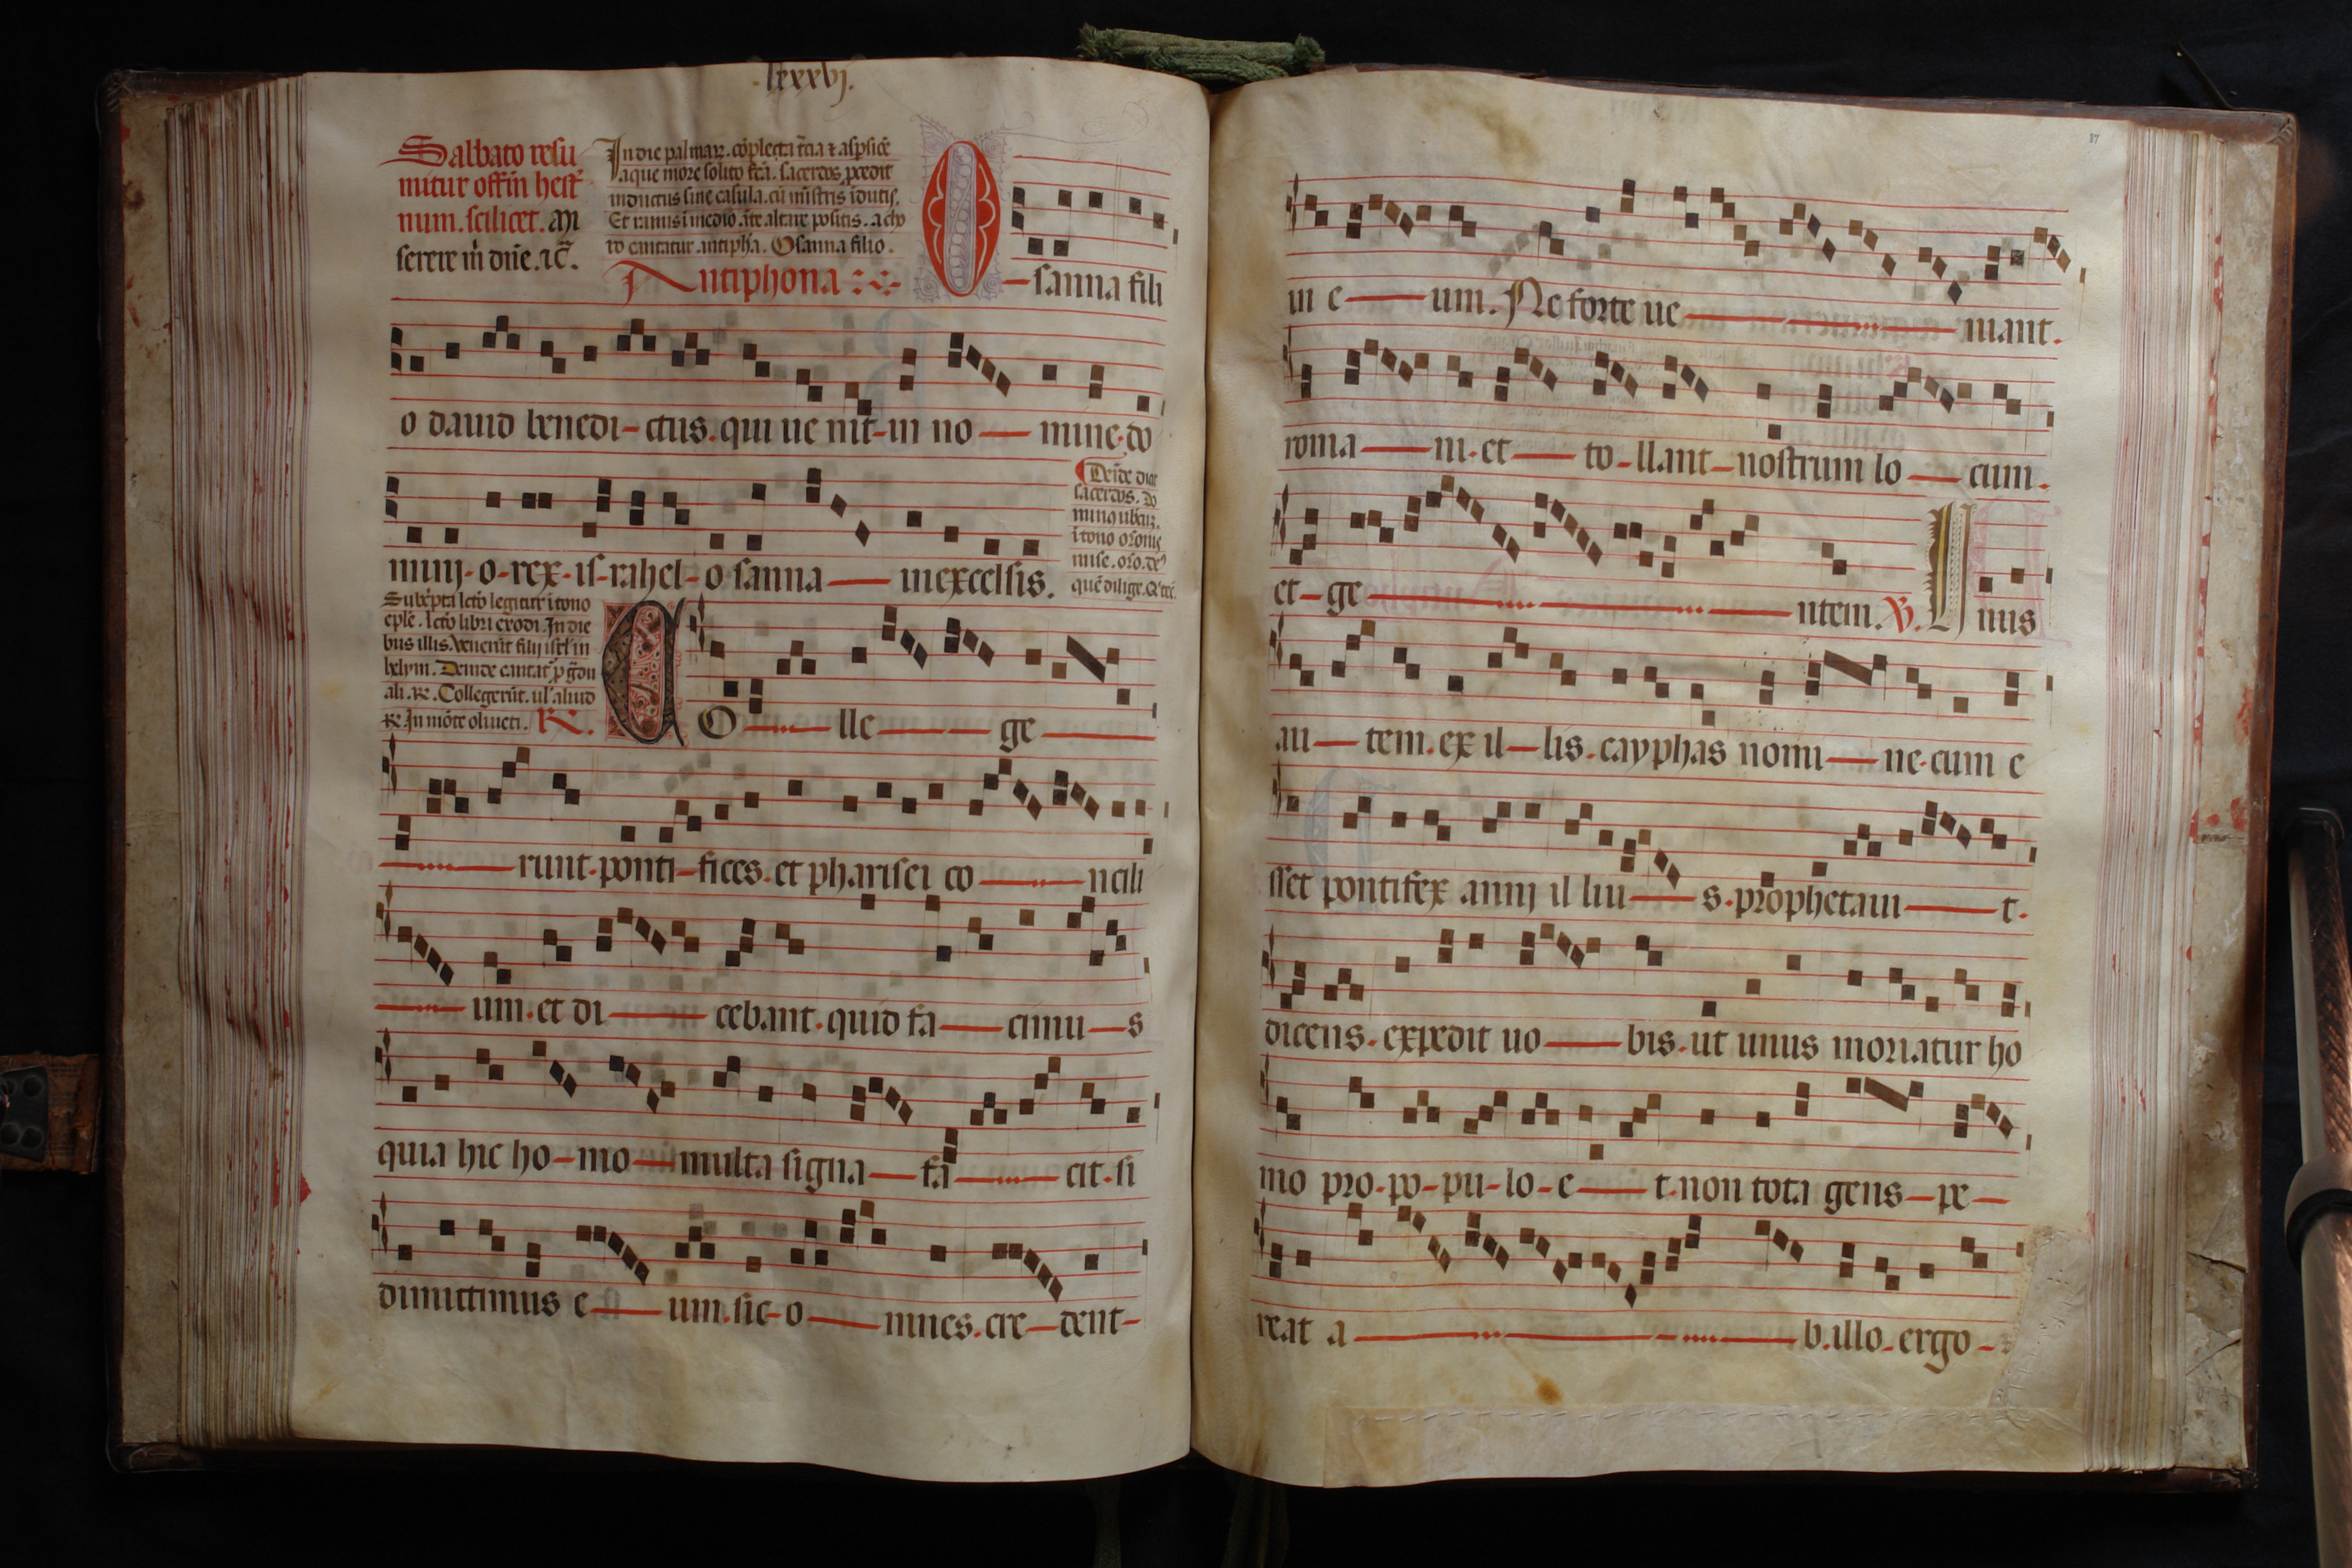 lxxxvj.
Sabbato resu
mitur offm hest
num. scilicet. Mi
serere m dne. zc.
In die palmaz. cōplecta tcia z aspsioē
aque more solito fca. sacerdos pcedit
indutus sine casula. cū mistris idutis.
Et ramis i medio āte altare positis. a cho
ro cantatur antipha. Osanna filio.
Antiphona
O-sanna fili
o dauid benedi-ctus. qui ue nit-in no-mine. do
minj-o-rex-is-rahel-o sanna-in excelsis.
Deide dicat
sacerdos. do
quē dilige.
Subcpta lcto legitur i tono
eple. lcto libri exodi. In die
bus illis. Venerūt filij isrl in
helym. Deinde cantat p gdu
ali. R. Collegerūt. ul aliud
R. In mōte oliueti. R.
CO-lle-ge-
-runt-ponti-fices. et pharisei co-ncili
-um. et di-cebant. quid fa-cimu-s
quia hic ho-mo-multa signa-fa-cit. si
dimittimus e-um. sic-o-mnes. cre-dent-
87
in e-um. Ne forte ue-niant.
roma-ni. et-to-llant-nostrum lo-cum.
et-ge-ntem. V. Unus
au-tem. ex il-lis. cayphas nomi-ne. cum e
sset pontifex annj il liu-s. prophetaui-t.
dicens. expedit uo-bis. ut unus moriatur ho
mo pro-po-pu-lo-e-t. non tota gens-pe-
reat a-b. illo. ergo-